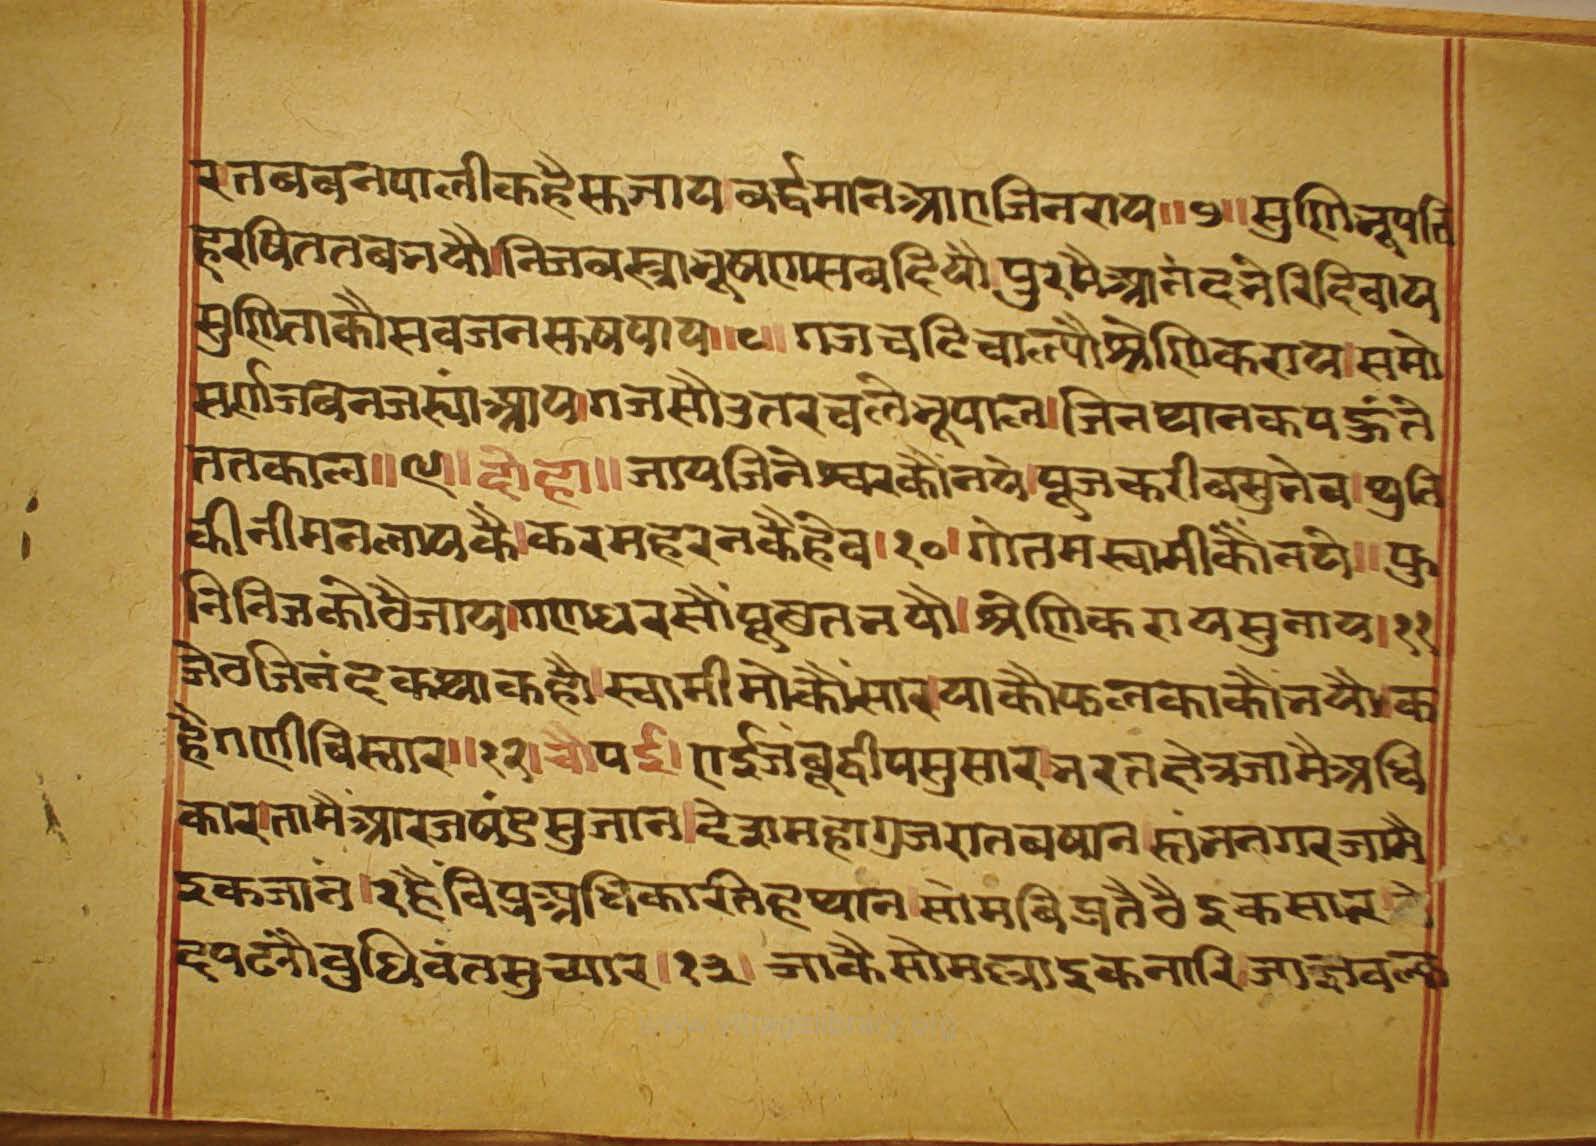 र।तबबनपालीकहैसुजाय।बर्द्धमानआएजिनराय॥७॥सुणिनृपति
हरषिततबभयौ।निजवस्त्राभूषणसबदियौ।पुरमैआनंदभेरिदिवाय
सुणिताकौसवजनसुषपाय॥८॥गजचढिचाल्यौश्रेणिकराय।समो
सर्णजबनजस्यांआय।गजसौउतरचलेभूपाल।जिनथानकपहुंते
ततकाल॥९॥दोहा॥जायजिनेश्वरकौंनये।पूजकरीबसुभेव।थुति
कीनीमनलायकै।करमहरनकैहेव।१०।गोतमस्वामीकौंनये॥फु
निनिजकोठैजाय।गणधरसौंपूछतनयौ।श्रेणिकरायसुनाय।११
जेठजिनंदकथाकहौ।स्वामीमोकौंसार।याकौफलकाकौंनयौ।क
हैगणीबिस्तार॥१२।चौपई।एईजंबूद्वीपसुसार।भरतक्षेत्रजामैअधि
कार।तामैंआरजषंडसुजान।देशमहागुजरातबषान।षंभनगरजामै
इकजांन।रहैविप्रअधिकारतिहथान।सोमबिप्रतैठैइकसार।वे
दपढनौबुधिवंतसुच्यार।१३।जाकैसोमस्त्राइकनारि।जाज्ञवल्क